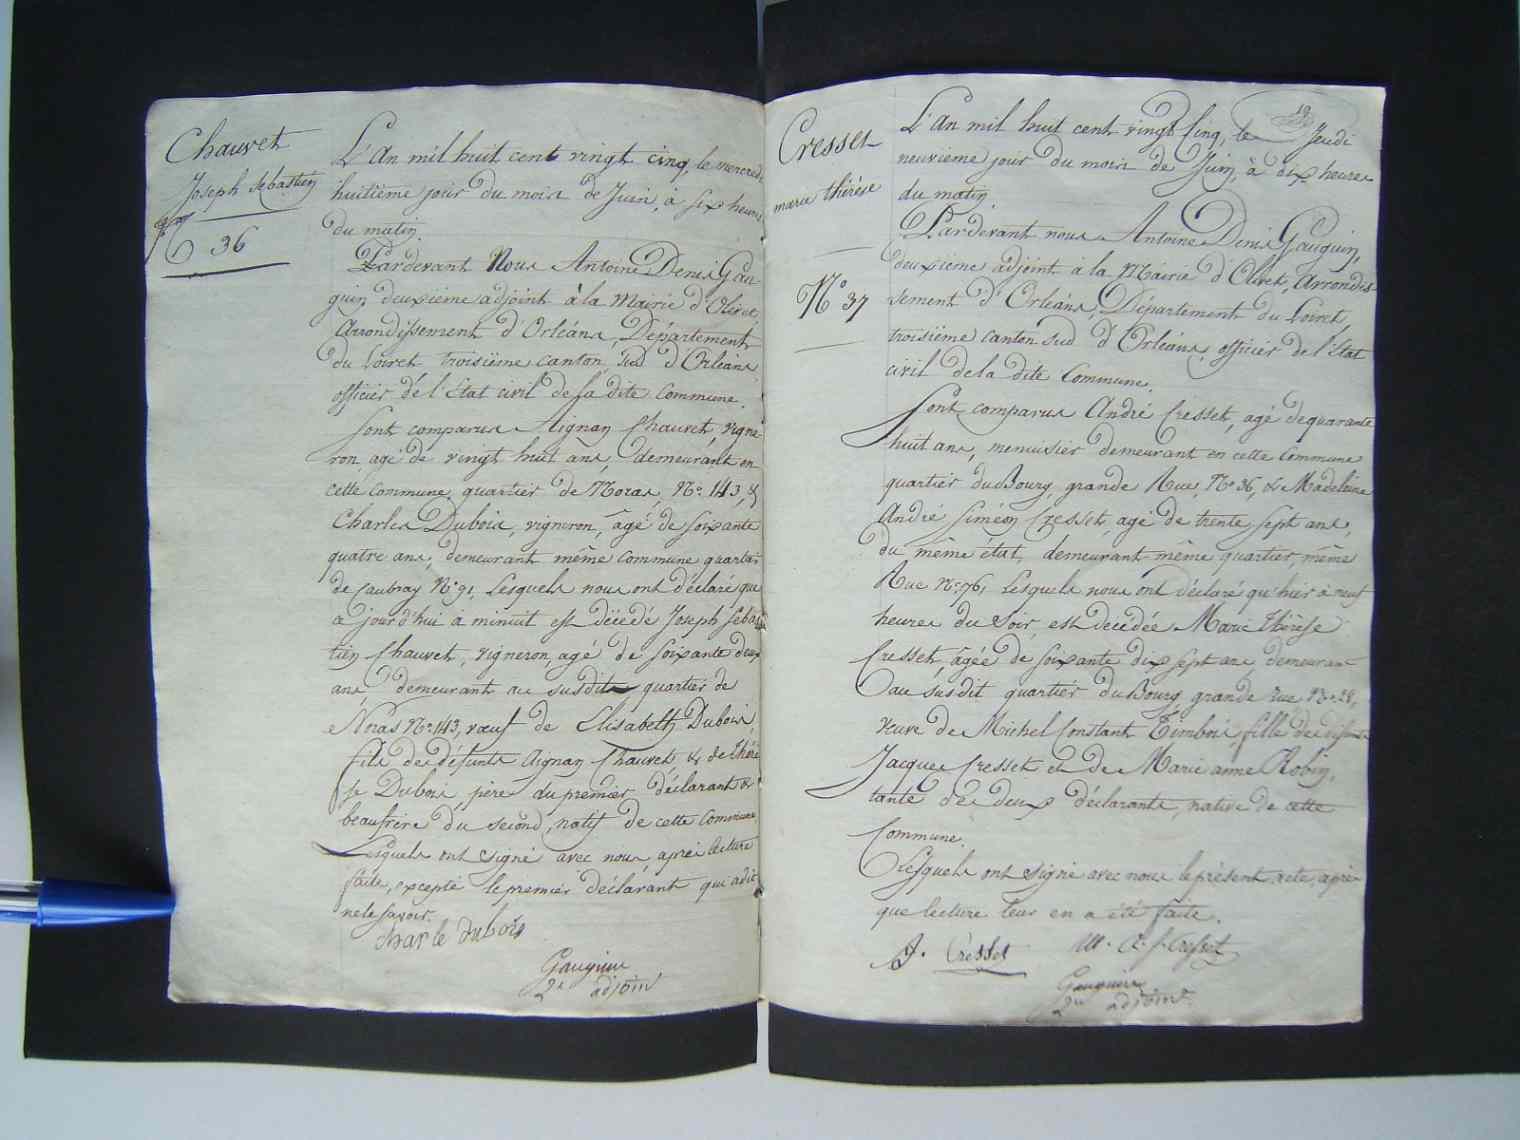 Chauvet
Joseph Sebastien
36
L'An mil huit cent vingt cinq, le mercredi
huitiëme jour du mois de Juin, à six heures
du matin.
Pardevant Nous Antoine Denis Gau-
guin deuxième adjoint à la Mairie d'Olivet,
Arrondissement d'Orléans, Département
du Loiret troisiëme canton Sud d'Orléans,
officier de l'Etat civil de la dite Commune.
Sont comparus Aignan Chauvet, vigne-
ron, agé de vingt huit ans, demeurant en
cette Commune, quartier de Noras, No. 143, &
Charles Dubois, vigneron, âgé de soixante
quatre ans, demeurant même commune quartier
de Caubray No. 91, Lesquels nous ont déclaré que
a jourd'hui à minuit est décédé Joseph Sebas
tien Chauvet, vigneron, agé de soixante deux
ans, demeurant au susdit quartier de
Noras No. 143, vœuf de Elisabeth Dubois,
fils de défunts Aignan Chauvet, & de Thérè
se Dubois, père du premier déclarant &
beaufrère du second, natif de cette Commune
Lesquels ont signé avec nous, après lecture
faite, excepté le premier déclarant qui a dit
ne le savoir.
charle dubois
Gauguin
2e adjoint
19
Cresset
marie thérèse
No 37
L'An mil huit cent vingt Cinq, le Jeudi
neuvieme jour du mois de Juin, à dix heures
du matin.
Pardevant nous Antoine Denis Gauguin,
deuxieme adjoint à la Mairie d'Olivet, Arrondis-
sement d'Orléans, Département du Loiret,
troisiëme canton Sud d'Orléans, officier de l'Etat
civil de la dite Commune.
Sont comparus André Cresset, agé de quarante
huit ans, menuisier demeurant en cette Commune
quartier du Bourg, grande Rue, No. 36, & Madeleine
André Siméon Cresset, agé de trente sept ans,
du même état, demeurant même quartier, même
Rue No. 76, Lesquels nous ont déclaré qu'hier à neuf
heures du soir, est décédée Marie Thérèse
Cresset, âgée de soixante dix sept ans, demeurant
au susdit quartier du Bourg, grande rue No. 28,
veuve de Michel Constant Timbois, fille de défunts
Jacques Cresset et de Marie anne Robin,
tante des deux déclarants, native de cette
Commune.
Lesquels ont signé avec nous le présent acte, après
que lecture leur en a été faite.
A. Cresset M. A. S. Cresset
Gauguin
2e adjoint